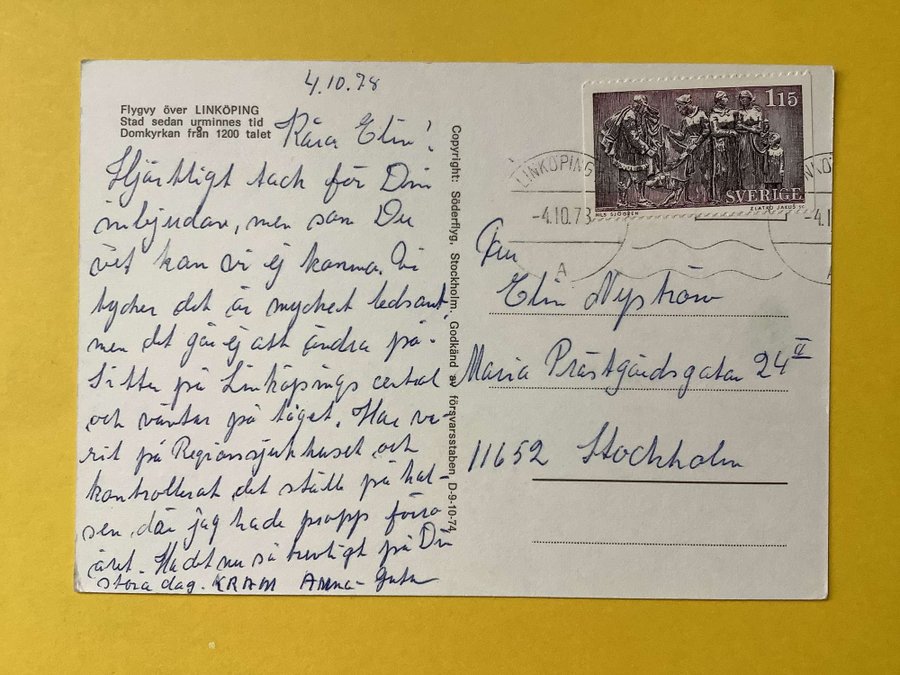 4.10.78
Flygvy över LINKÖPING
Stad sedan urminnes tid
Domkyrkan från 1200 talet
Kära Elin!
Hjärtligt tack för Din
inbjudan, men som Du
vet kan vi ej komma. Vi
tycker det är mycket ledsamt,
men det går ej att ändra på.
Sitter på Linköpings central
och väntar på tåget. Har va-
rit på Regionssjukhuset och
kontrollerat det ställe på hal-
sen, där jag hade propp förra
året. Ha det nu så trevligt på Din
stora dag. KRAM Anna-Greta
Copyright: Söderflyg, Stockholm. Godkänd av försvarsstaben, D-9-10-74
115
SVERIGE
NILS SJÖGREN
ZLATKO JAKUS SC
LINKÖPING
-4.10.73
A
NKÖ
-4.1
A
Fru
Elin Nyström
Maria Prästgårdsgatan 24 IV
11652 Stockholm